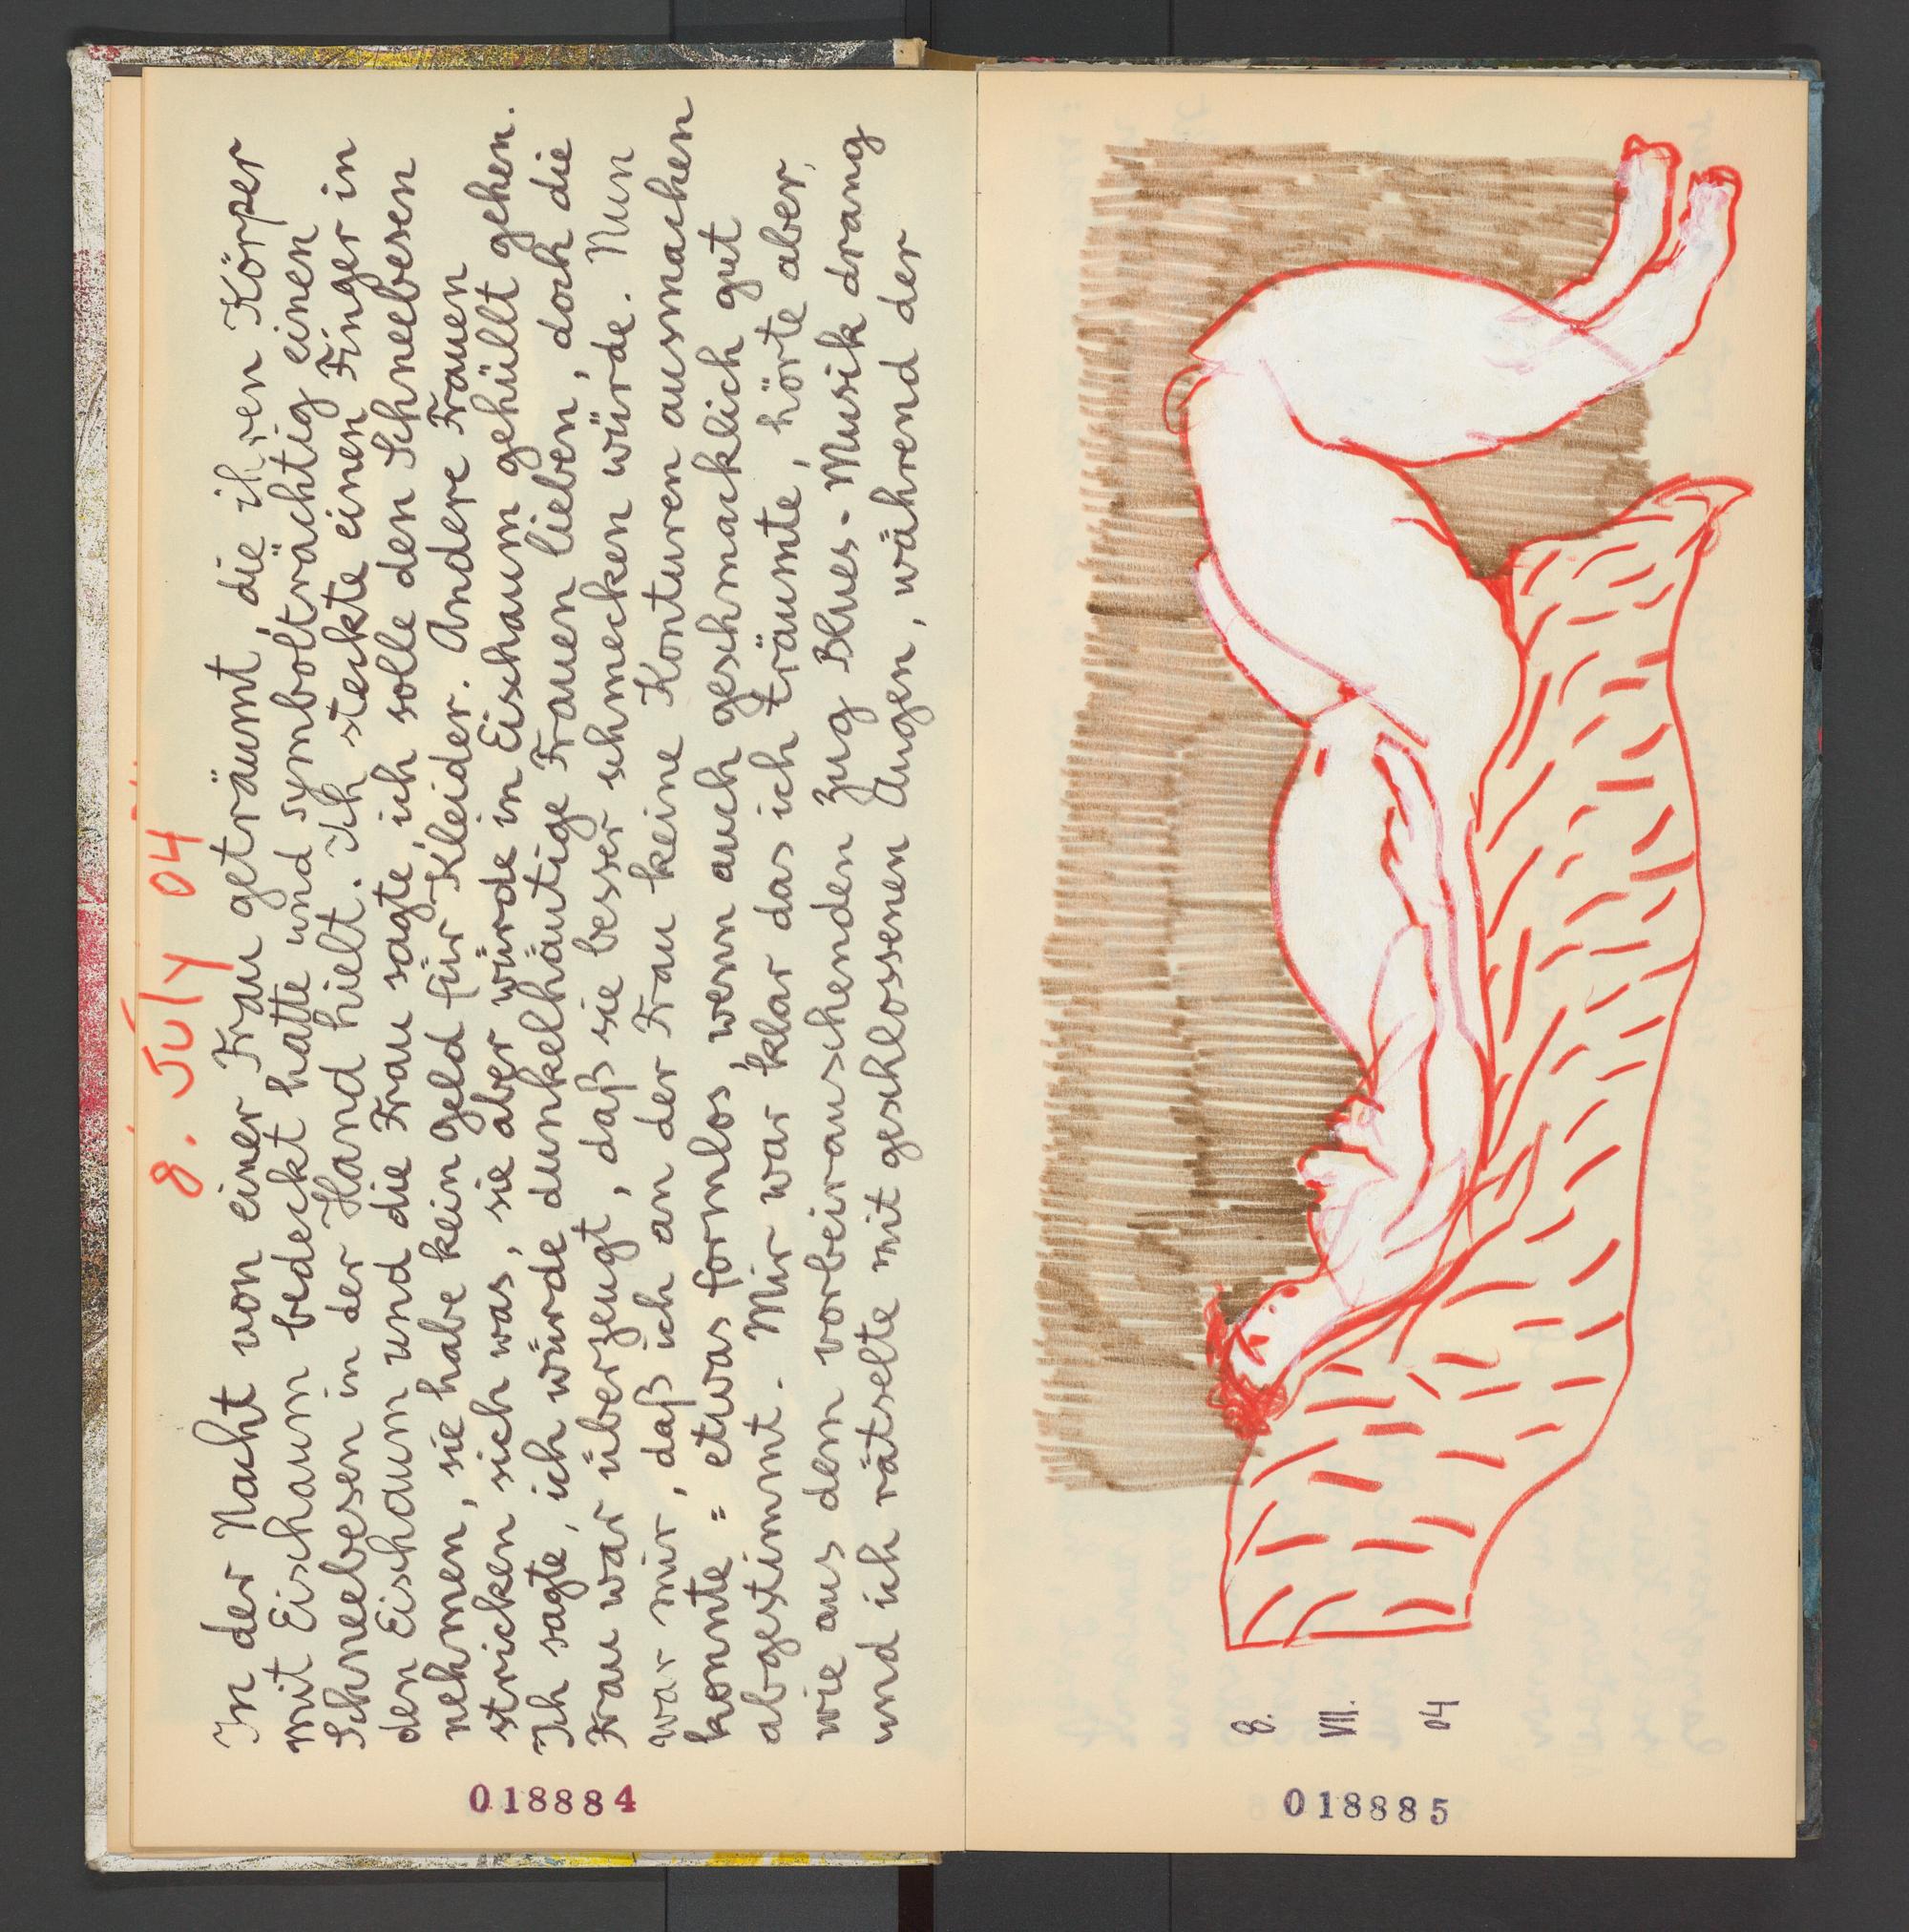 8. July 04
In der Nacht von einer Frau geträumt, die ihren Körper
mit Eischaum bedeckt hatte und symbolträchtig einen
Schneebesen in der Hand hielt. Ich steckte einen Finger in
den Eischaum und die Frau sagte, ich solle den Schneebesen
nehmen, sie habe kein Geld für Kleider. Andere Frauen
stricken sich was, sie aber würde in Eischaum gehüllt gehen.
Ich sagte, ich würde dunkelhäutige Frauen lieben, doch die
Frau war überzeugt, daß sie besser schmecken würde. Nun
war mir, daß ich an der Frau keine Konturen ausmachen
konnte = etwas formlos, wenn auch geschmacklich gut
abgestimmt. Mir war klar das ich träumte, hörte aber,
wie aus dem vorbeirauschenden Zug Blues-Musik drang
und ich rätselte mit geschlossenen Augen, während der
018884
8.
VII.
04
018885